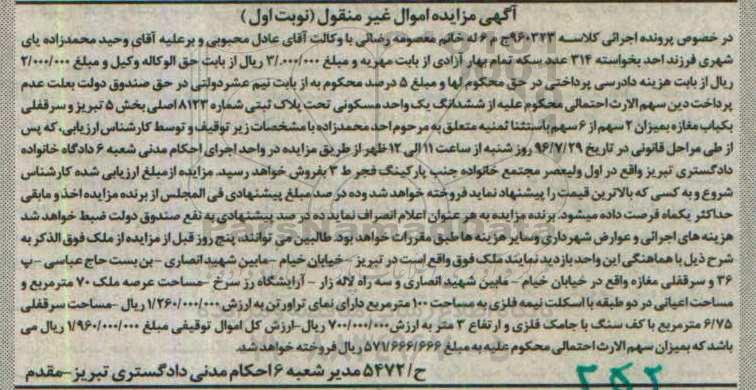 آگهی مزایده اموال غیر منقول (نوبت اول)
در خصوص پرونده اجرائی کلاسه ۹۶۰۳۲۳ج م ۶ له خانم معصومه رضائی با وکالت آقای عادل محبوبی و بر علیه آقای وحید محمدزاده یای
شهری فرزند احد بخواسته ۳۱۴ عدد سکه تمام بهار آزادی از بابت مهریه و مبلغ ۳/۰۰۰/۰۰۰ ریال از بابت حق الوکاله وکیل و مبلغ ۲/۰۰۰/۰۰۰
ریال از بابت هزینه دادرسی پرداختی در حق محکوم لها و مبلغ ۵ درصد محکوم به از بابت نیم عشر دولتی در حق صندوق دولت بعلت عدم
پرداخت دین سهم الارث احتمالی محکوم علیه از ششدانگ یک واحد مسکونی تحت پلاک ثبتی شماره ۸۱۲۳ اصلی بخش ۵ تبریز و سرقفلی
یکباب مغازه بمیزان ۲ سهم از ۶ سهم باستثنا ثمنیه متعلق به مرحوم احد محمدزاده با مشخصات زیر توقیف و توسط کارشناس ارزیابی، که پس
از طی مراحل قانونی در تاریخ ۹۶/۷/۲۹ روز شنبه از ساعت ۱۱ الی ۱۲ ظهر از طریق مزایده در واحد اجرای احکام مدنی شعبه ۶ دادگاه خانواده
دادگستری تبریز واقع در اول ولیعصر مجتمع خانواده جنب پارکینگ فجر ط ۳ بفروش خواهد رسید. مزایده از مبلغ ارزیابی شده کارشناس
شروع و به کسی که بالاترین قیمت را پیشنهاد نماید فروخته خواهد شد و ده در صد مبلغ پیشنهادی فی المجلس از برنده مزایده اخذ و مابقی
حداکثر یکماه فرصت داده میشود. برنده مزایده به هر عنوان اعلام انصراف نماید ده در صد پیشنهادی به نفع صندوق دولت ضبط خواهد شد
هزینه های اجرائی و عوارض شهرداری و سایر هزینه ها طبق مقررات خواهد بود. طالبین می توانند، پنج روز قبل از مزایده از ملک فوق الذکر به
شرح ذیل با هماهنگی این واحد بازدید نمایند ملک فوق واقع است در تبریز - خیابان خیام - مابین شهید انصاری - بن بست حاج عباسی -پ
۳۶ و سرقفلی مغازه واقع در خیابان خیام - مابین شهید انصاری و سه راه لاله زار - آرایشگاه رز سرخ -مساحت عرصه ملک ۷۰ مترمربع و
مساحت اعیانی در دو طبقه با اسکلت نیمه فلزی به مساحت ۱۰۰ مترمربع دارای نمای تراورتن به ارزش ۱/۲۶۰/۰۰۰/۰۰۰ ریال -مساحت سرقفلی
۶/۷۵ مترمربع با کف سنگ با جامک فلزی و ارتفاع ۳ متر به ارزش ۷۰۰/۰۰۰/۰۰۰ ریال-ارزش کل اموال توقیفی مبلغ ۱/۹۶۰/۰۰۰/۰۰۰ ریال می
باشد که بمیزان سهم الارث احتمالی محکوم علیه به مبلغ ۵۷۱/۶۶۶/۶۶۶ ریال فروخته خواهد شد.
ح/۵۴۷۲ مدیر شعبه ۶ احکام مدنی دادگستری تبریز-مقدم
۲۵۲